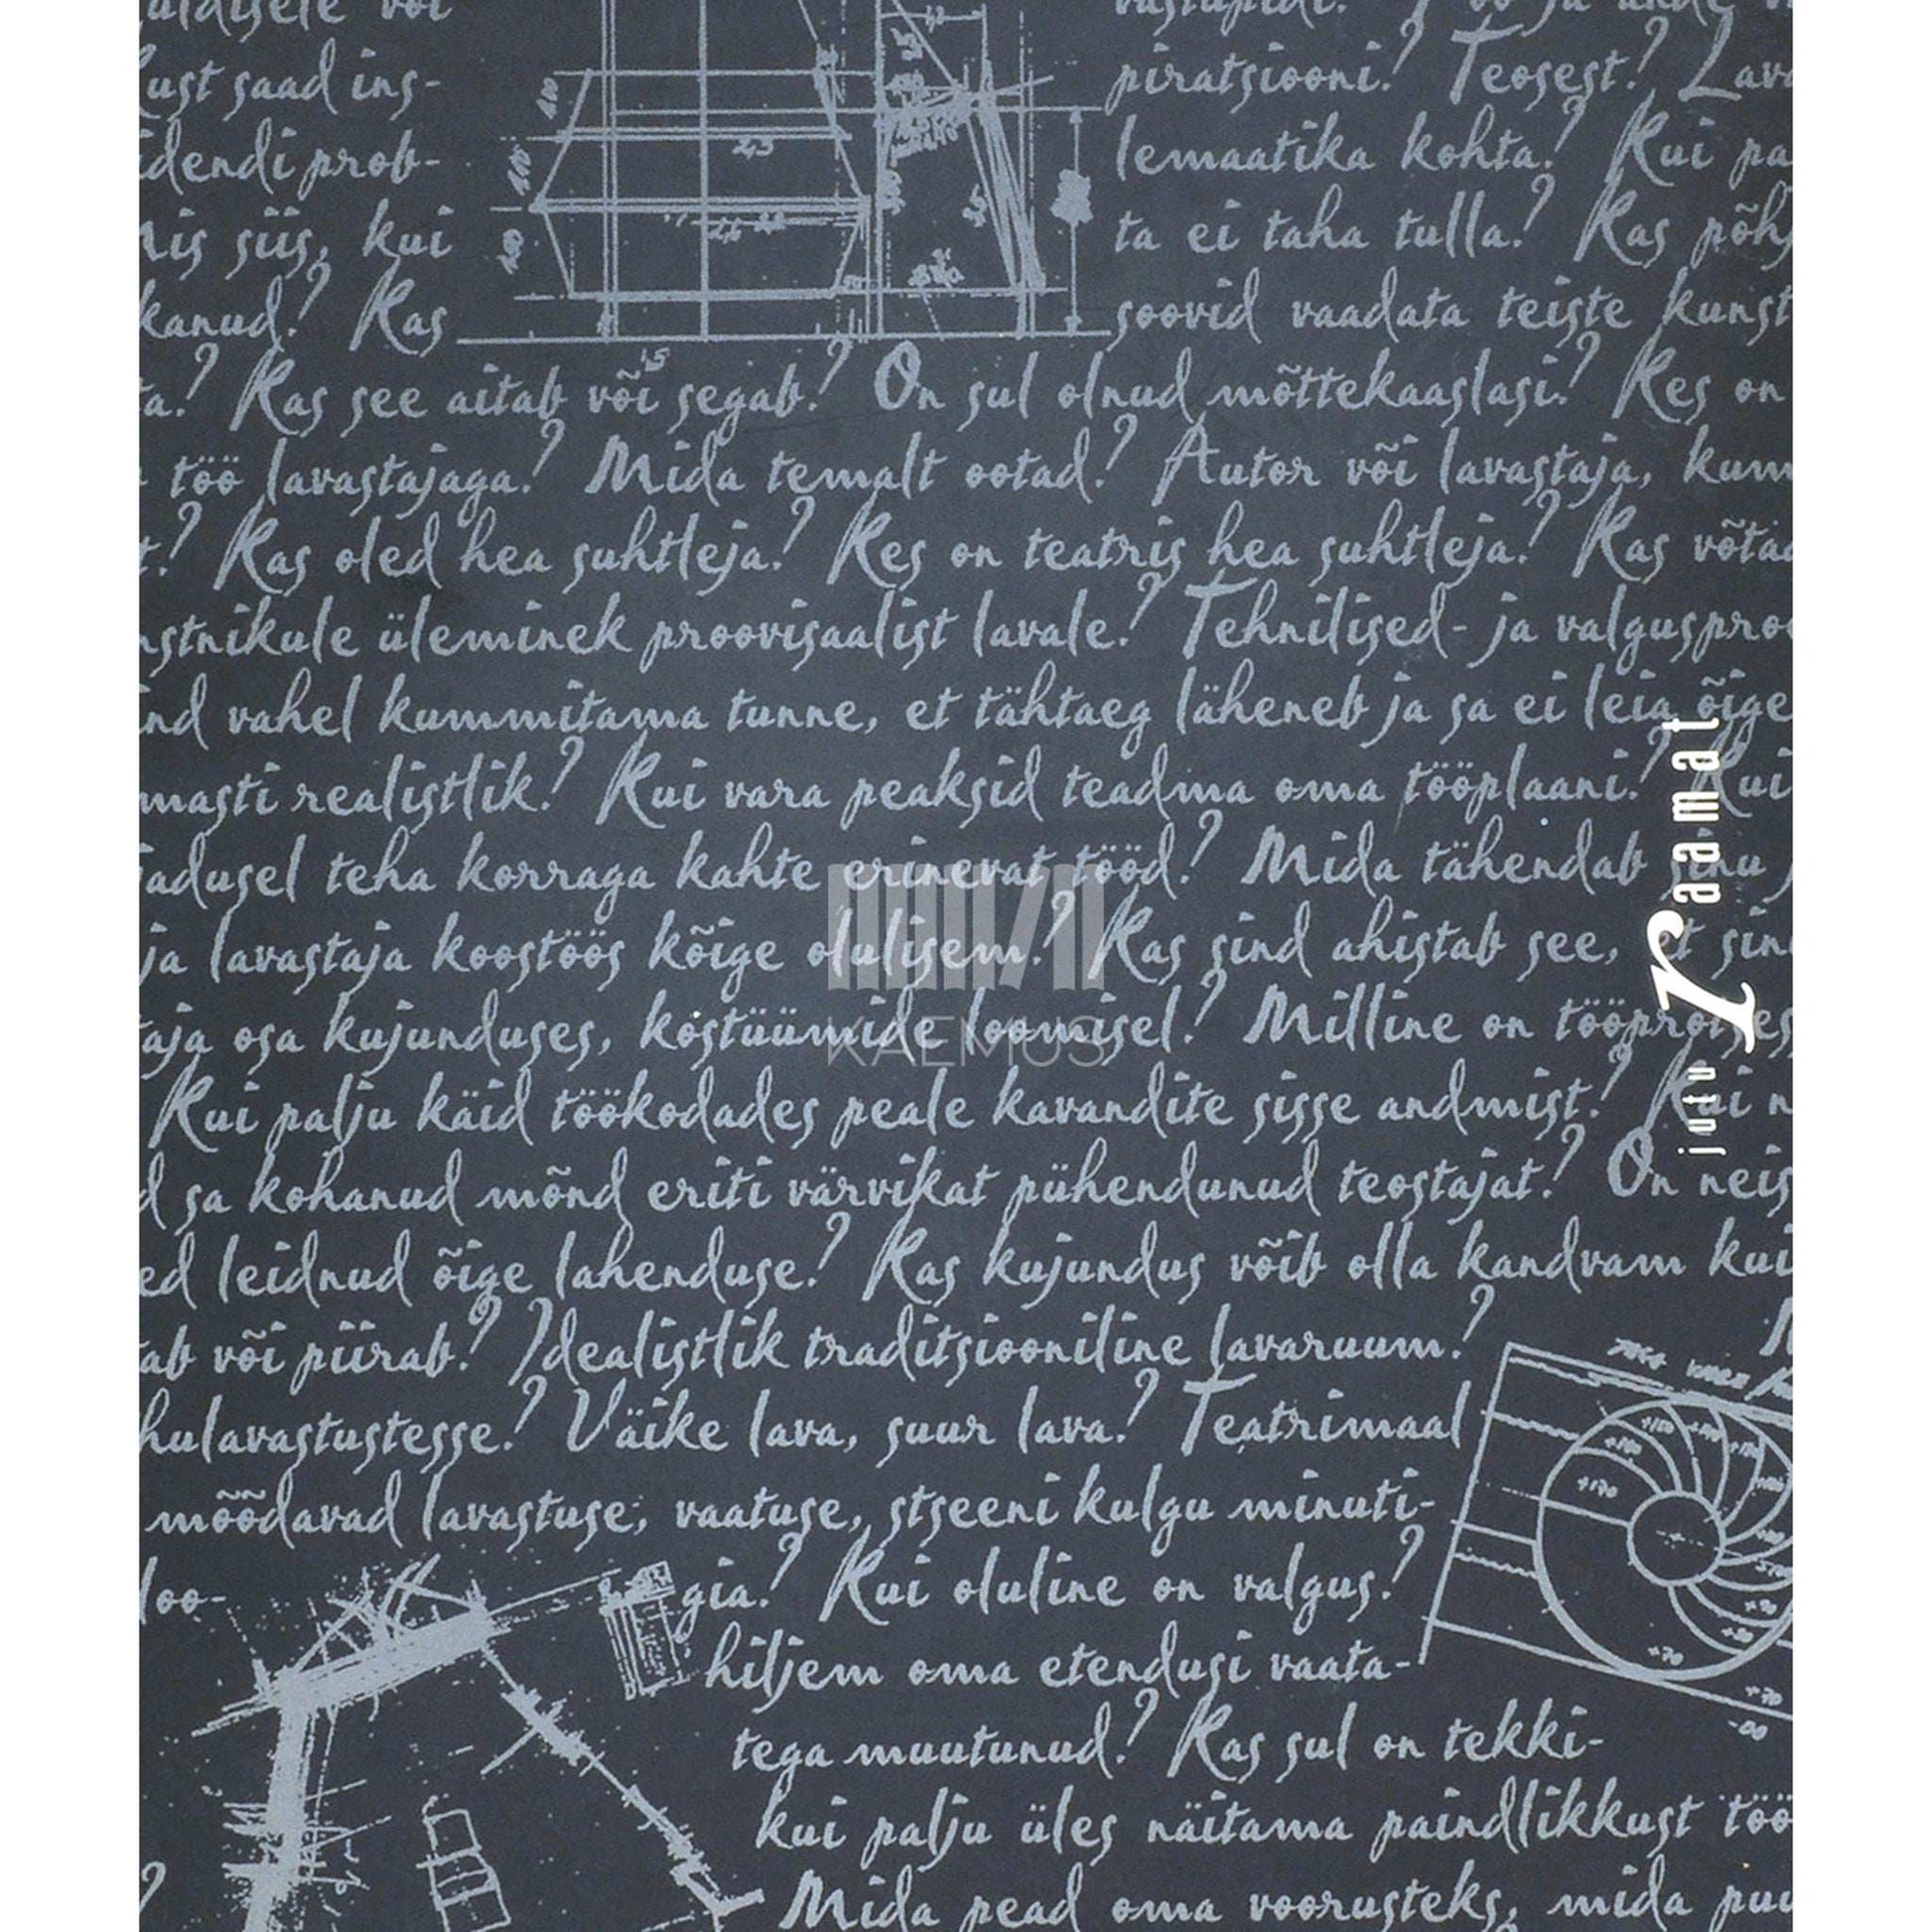 kust saad ins- piratsiooni? Teosest?
prob- lemaatika kohta? Kui
siis, kui ta ei taha tulla? Kas
Kas soovid vaadata teiste
Kas see aitab või segab? On sul olnud mõttekaaslasi? Kes on
töö lavastajaga? Mida temalt ootad? Autor või lavastaja,
Kas oled hea suhtleja? Kes on teatris hea suhtleja? Kas
üleminek proovisaalist lavale? Tehnilised- ja
vahel kummitama tunne, et tähtaeg läheneb ja sa ei leia õige
realistlik? Kui vara peaksid teadma oma tööplaani? Kui
teha korraga kahte erinevat tööd? Mida tähendab sinu
ja lavastaja koostöös kõige olulisem? Kas sind ahistab see, et
osa kujunduses, kostüümide loomisel? Milline on
Kui palju käid töökodades peale kavandite sisse andmist? Kui
sa kohanud mõnd eriti värvikat pühendunud teostajat? On
leidnud õige lahenduse? Kas kujundus võib olla kandvam kui
või piirab? Idealistlik traditsiooniline lavaruum?
Väike lava, suur lava? Teatrimaal
mõõdavad lavastuse, vaatuse, stseeni kulgu minuti-
loo- gia? Kui oluline on valgus?
hiljem oma etendusi vaata-
tega muutunud? Kas sul on tekki-
kui palju üles näitama paindlikkust
Mida pead oma voorusteks, mida
jutu raamat
KAEMUS